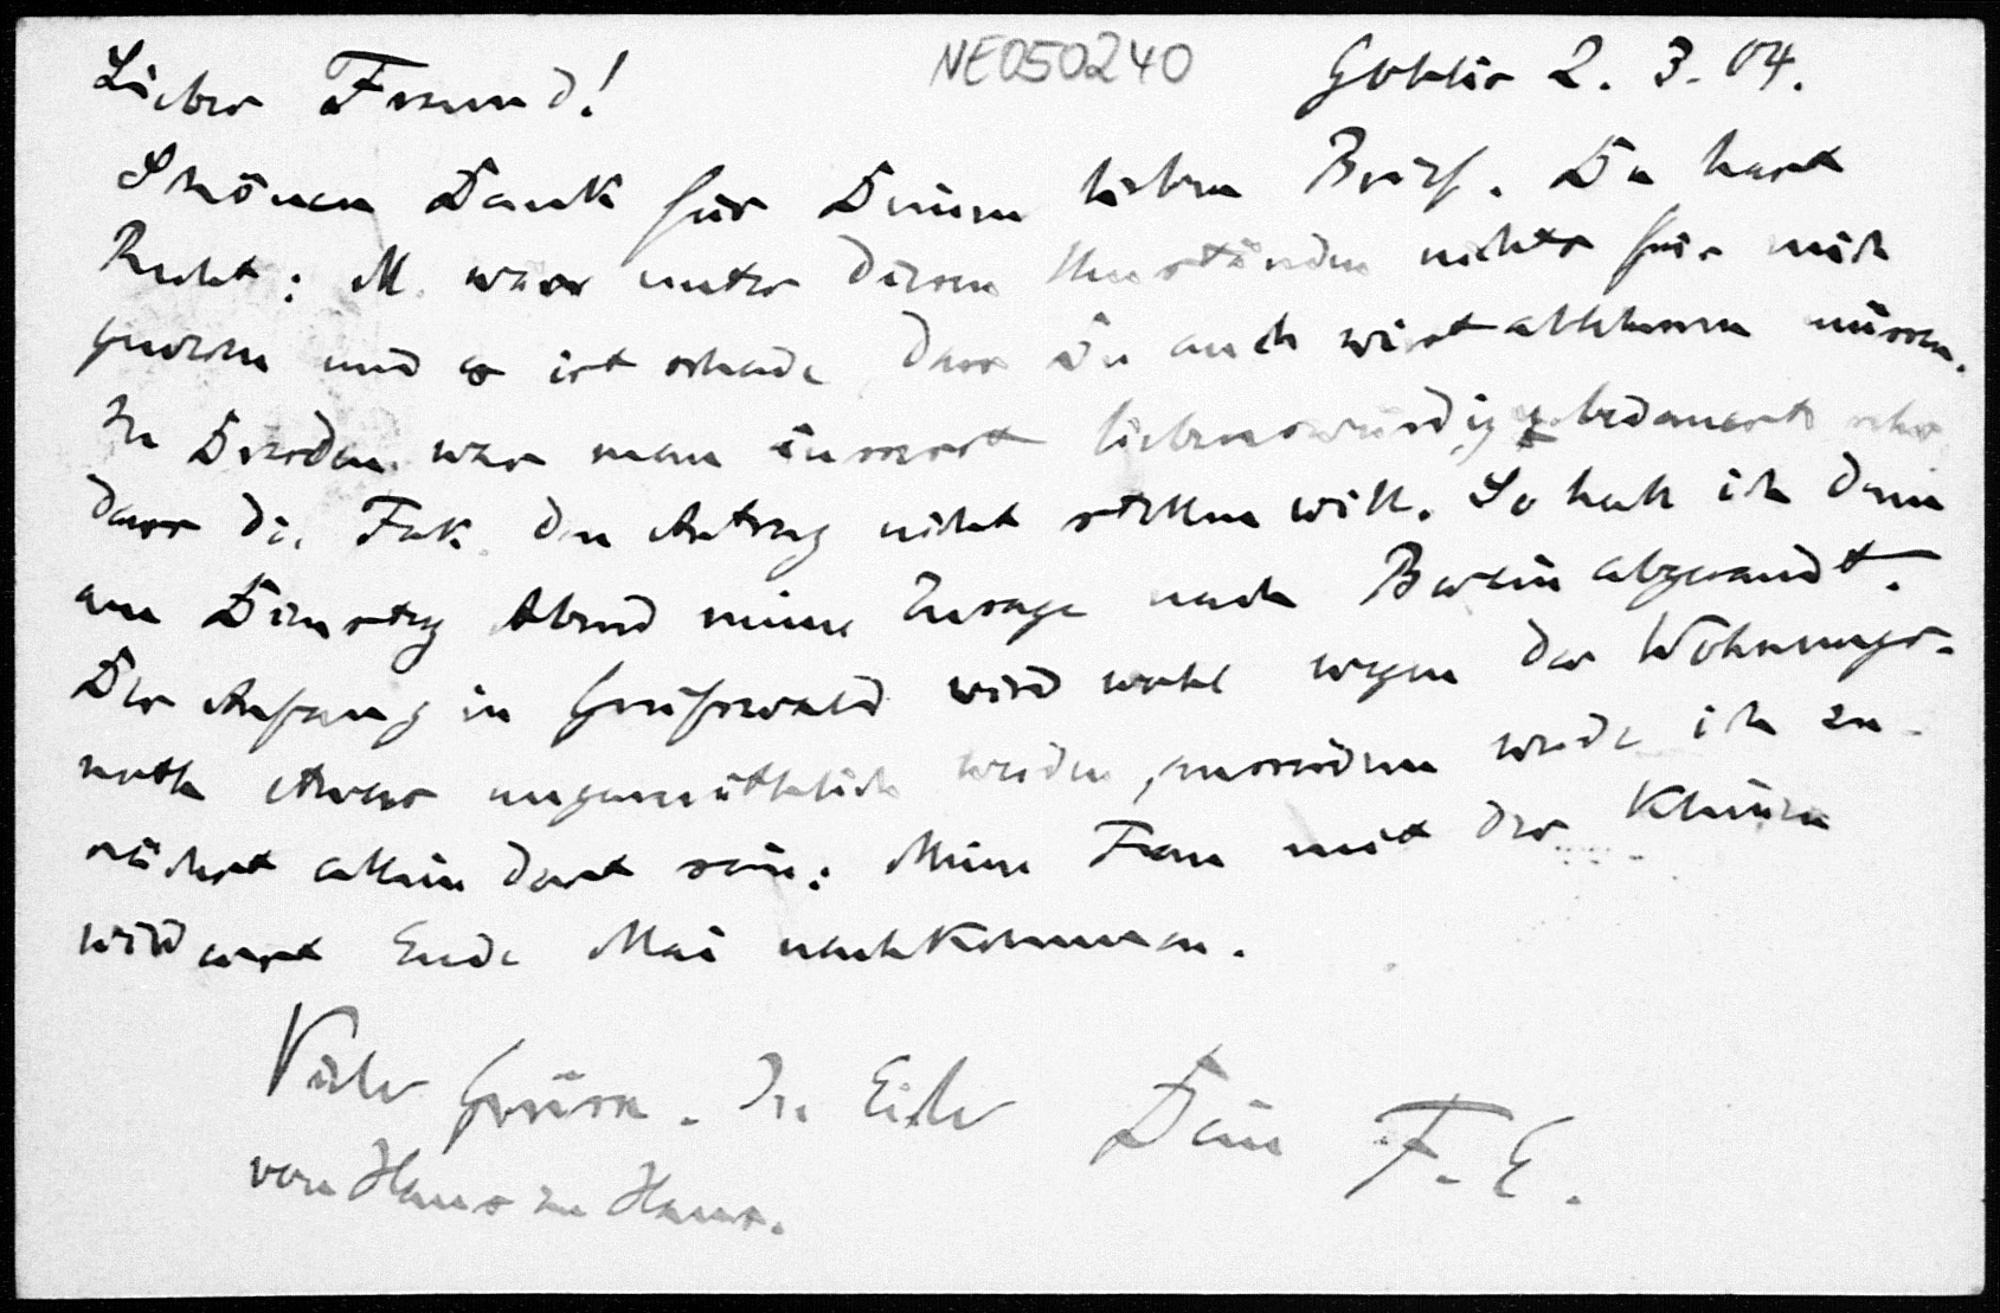 Lieber Freund! NE050240 Gohlis 2. 3. 04.
Schönen Dank für Deinen lieben Brief. Du hast
Recht: M. wäre unter diesen Umständen nichts für mich
gewesen und es ist schade, dass Du auch wirst ablehnen müssen.
In Dresden war man äusserst liebenswürdig & bedauerte sehr
dass die Fak. den Antrag nicht stellen will. So hab ich denn
am Dienstag Abend meine Zusage nach Berlin abgesandt.
Der Anfang in Greifswald wird wohl wegen der Wohnungs-
noth etwas ungemüthlich werden, ausserdem werde ich zu-
nächst allein dort sein: Meine Frau mit der Kleinen
wird erst Ende Mai nachkommen.
Viele Grüsse. In Eile Dein F. E.
von Haus zu Haus.